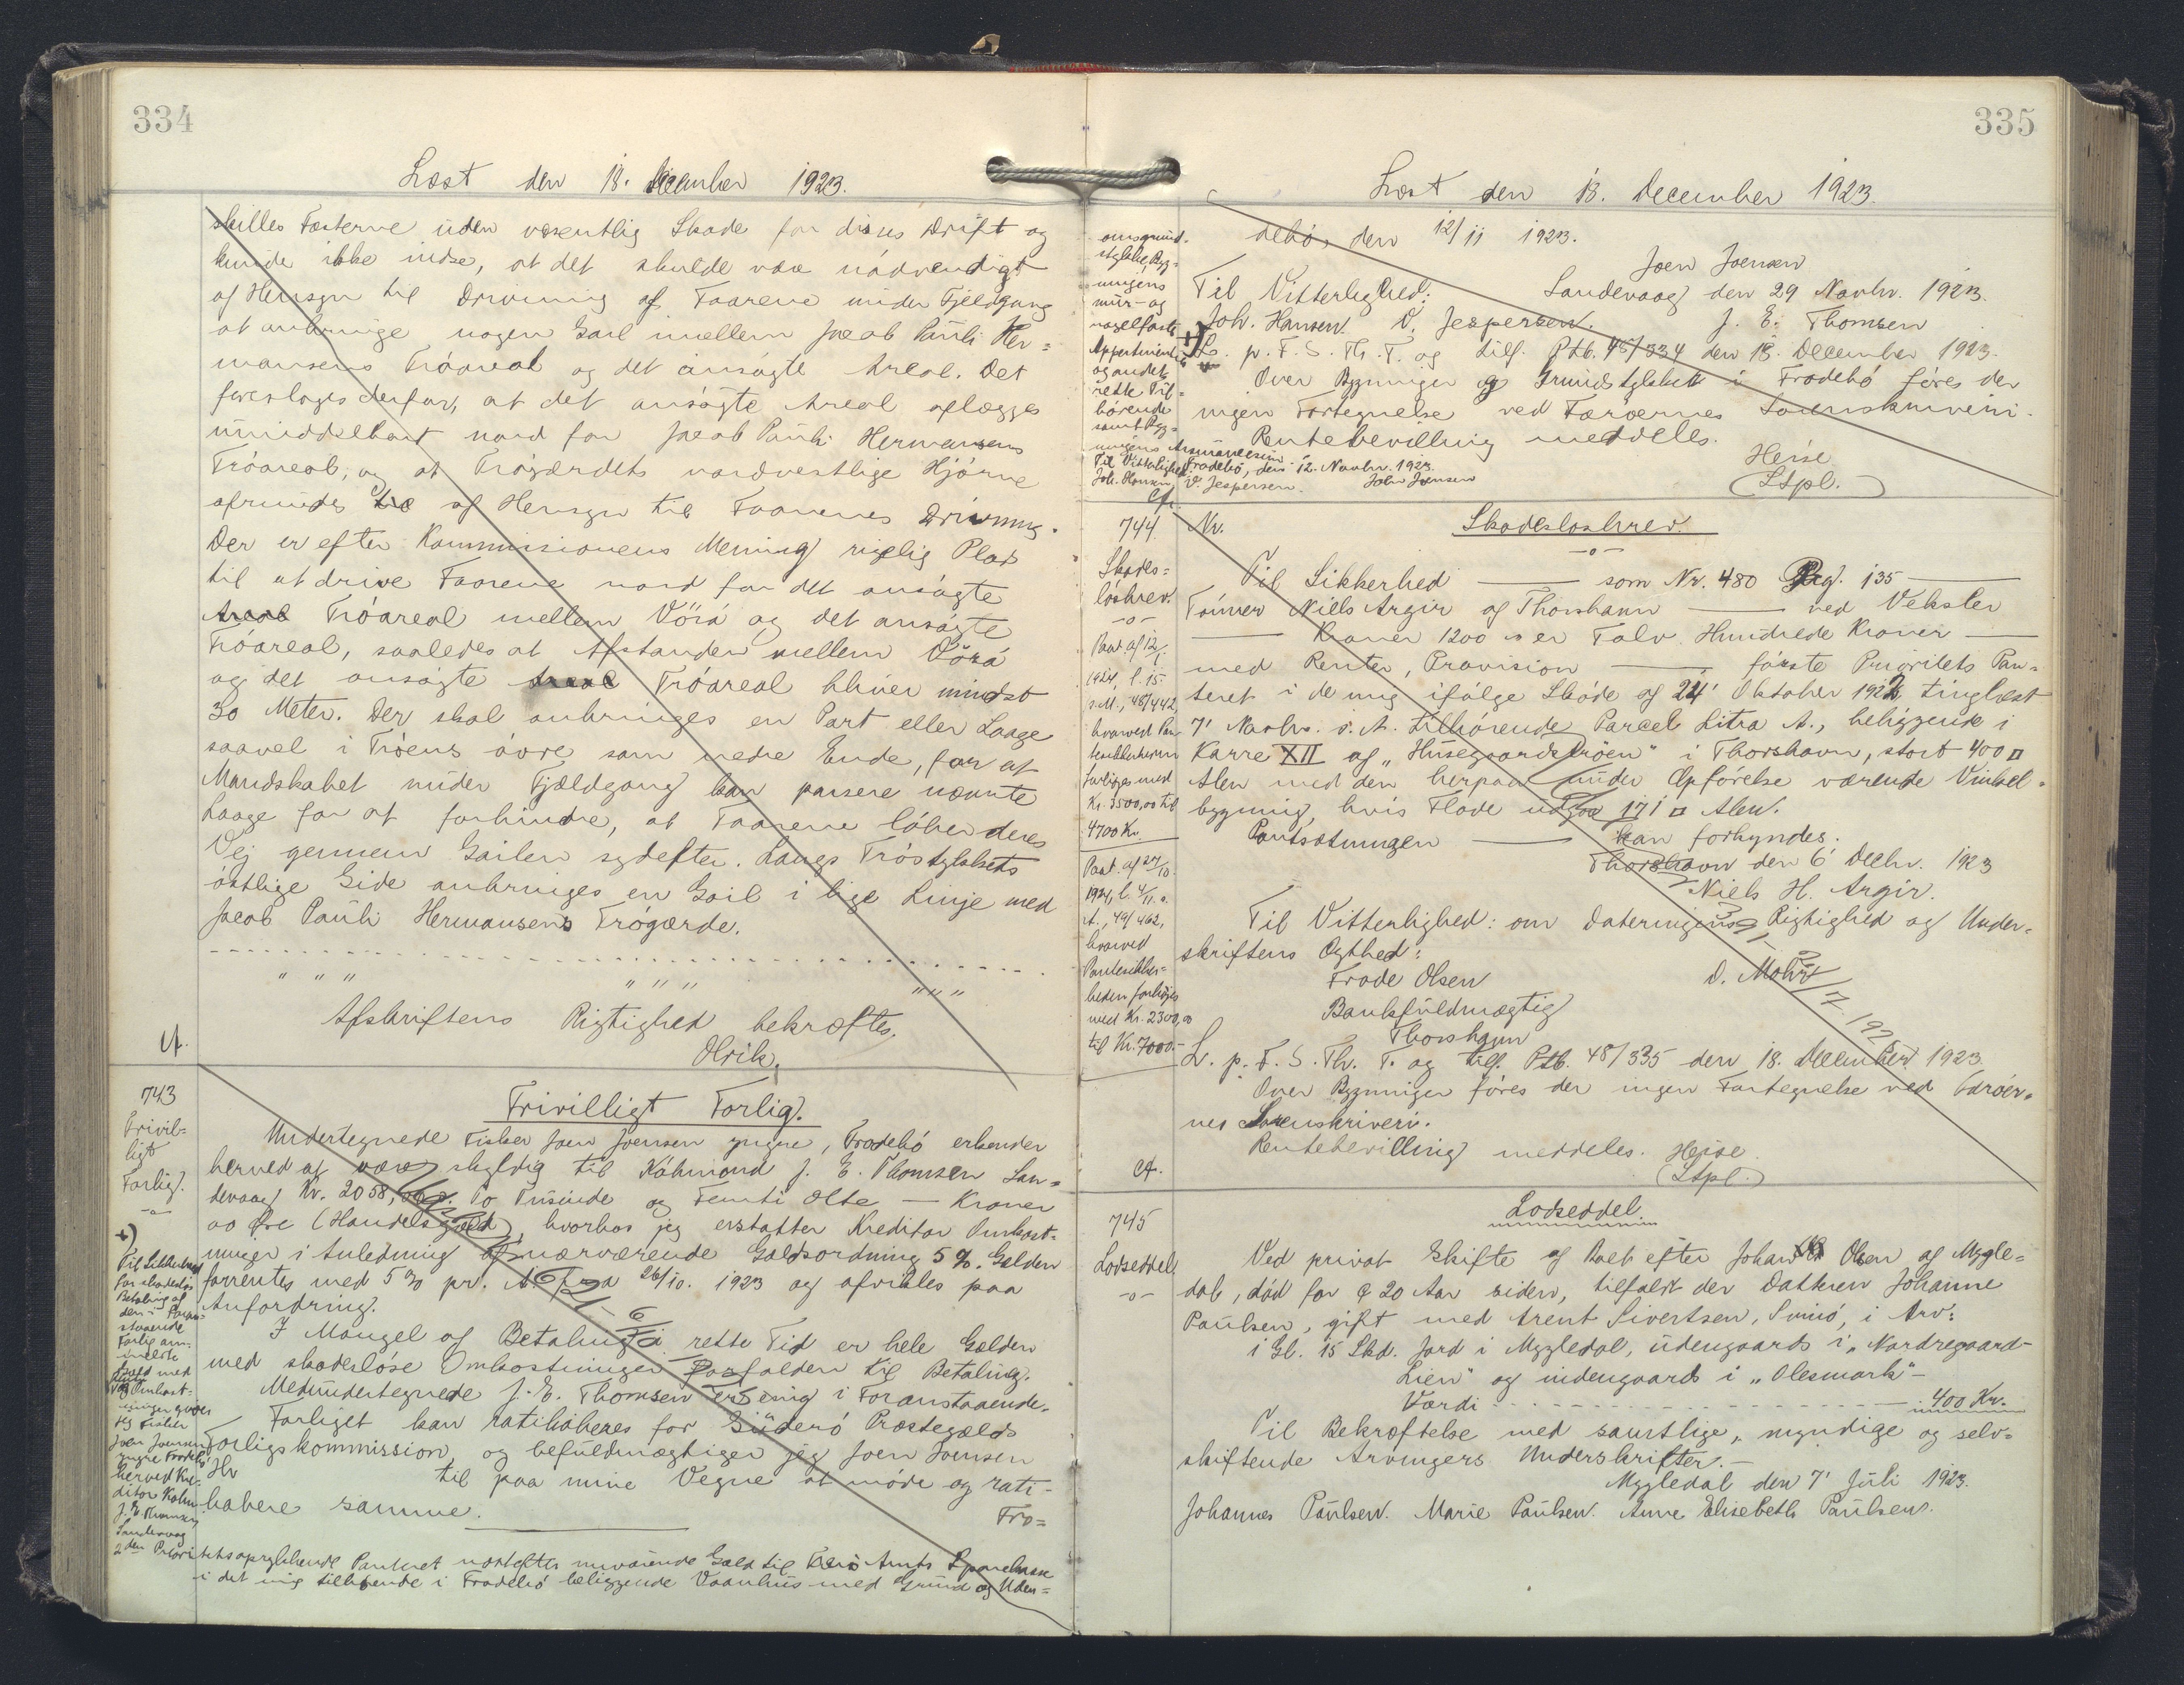 334
Læst den 18. December 1923.
skilles Fæsterne uden væsentlig Skade for disses Drift og
kunde ikke indse, at det skulde være nödvendigt
af Hensyn til Drivning af Faarene under Fjeldgang
at anbringe nogen Geil mellem Jacob Pauli Her=
mansens Tröareal og det ansögte Areal. Det
foreslages derfor, at det ansögte Areal aflægges
umiddelbart nord for Jacob Pauli Hermansens
Tröareal, og at Trögærdets nordvestlige Hjörne
afrundes af Hensyn til Faarenes Drivning.
Der er efter Kommissionens Mening rigelig Plads
til at drive Faarene nord for det ansögte
Areal Tröareal mellem Vörá og det ansögte
Tröareal, saaledes at Afstanden mellem Vörá
og det ansögte Areal Tröareal bliver mindst
30 Meter. Der skal anbringes en Port eller Laage
saavel i Tröens övre som nedre Ende, for at
Mandskabet under Fjældgang kan passere nævnte
Laage for at forhindre, at Faarene löber deres
Vej gennem Geilen sydefter. Langs Tröstykkets
östlige Side anbringes en Geil i lige Linje med
Jacob Pauli Hermansens Trögærde.
" " " " " " " " "
Afskriftens Rigtighed bekræftes.
Olrik.
A.
743
Frivil=
ligt
Forlig.
-o-
Frivilligt Forlig.
Undertegnede Fisker Joen Joensen yngre, Frodebö erkender
herved at være skyldig til Köbmand J. E. Thomsen San=
devaag Kr. 2058,00 To Tusinde og Femti Otte — Kroner
00 Öre (Handelsgæld), hvorhos jeg erstatter Kreditor Omkost=
ninger i Anledning af nærværende Gældsordning 5 %. Gælden
forrentes med 5 % pr. A. fra 26/10. 1923 og afvikles paa
Anfordring.
I Mangel af Betaling i rette Tid er hele Gælden
med skadeslöse Omkostninger forfalden til Betaling.
Medundertegnede J. E. Thomsen er enig i Foranstaaende.
Forliget kan ratihaberes for Süderö Præstegælds
Forligskommission, og befuldmægtiger jeg Joen Joensen
Hr til paa mine Vegne at möde og rati-
habere samme.
Fro=
+)
Til Sikkerhed
for skadeslös
Betaling af
den i Foran-
staaende
Forlig an-
meldte
Gæld med
Renter
og Omkost=
ninger giver
jeg Fisker
Joen Joensen
yngre Frodebö
herved Kre-
ditor Købm.
J. E. Thomsen,
Sandevaag
2den Prioritetsoprykkende Panteret næstefter nuværende Gæld til Færö Amts Sparekasse
i det mig tilhörende i Frodebö beliggende Vaanhus med Grund og Uden=
335
Læst den 18. December 1923.
omsgrund-
stykke, Byg=
ningens
mur- og
nagelfaste
Appertinentier
og andet
rette Til=
hörende
samt Byg=
ningens Assurancesum
Til Vitterlighed: Frodebö, den 12. Novbr. 1923.
Joh. Hansen V. Jespersen. Joen Joensen
debö, den 12/11 1923.
Joen Joensen
Til Vitterlighed: Sandevaag den 29 Novbr. 1923.
Joh. Hansen. V. Jespersen. J. E. Thomsen
+)
L. p. F. S. Th. T. og tilf. Ptb. 48/334 den 18. December 1923.
Over Bygninger og Grundstykket i Frodebö föres der
ingen Fortegnelse ved Færöernes Sorenskriveri.
Rentebevilling meddeles.
Heise
(Stpl.)
A.
744
Skades=
lösbrev.
-o-
Paat. af 12/1
1924, l. 15
s. M., 48/442,
hvorved Pan-
tesikkerheden
forhöjes med
Kr. 3500,00 til
4700 Kr.
Paat. af 27/10.
1924, l. 4/11. s.
A., 49/462,
hvorved
Pantesikker=
heden forhöjes
med Kr. 2300,00
til Kr. 7000.-
A.
Nr. Skadeslosbrev.
-o-
Til Sikkerhed — som Nr. 480 Pag. 135 —
Tömrer Niels Argir af Thorshavn — ved Veksler
— Kroner 1200 er Tolv Hundrede Kroner —
med Renter, Provision — förste Prioritets Pan=
teret i de mig ifölge Sköde af 24' Oktober 1922 tinglæst
7' Novbr. s. A. tilhörende Parcel Litra A., beliggende i
Karre XII af „Husegaardströen" i Thorshavn, stort 400 □
Alen med den herpaa under Opförelse værende Vinkel=
bygning, hvis Flade udgör 171 □ Alen.
Pantsætningen — kan forkyndes.
Thorshavn den 6' Decbr. 1923
Niels H. Argir.
Til Vitterlighed: om Dateringens Rigtighed og Under=
skriftens Ægthed:
Frode Olsen D. Mohr
Bankfuldmægtig
Thorshavn
L. p. F. S. Th. T. og tilf. Ptb. 48/335 den 18. December 1923.
Over Bygninger föres der ingen Fortegnelse ved Færöer=
nes Sorenskriveri.
Rentebevilling meddeles. Heise
(Stpl.)
745
Lodseddel
-o-
Lodseddel.
Ved privat Skifte af Boet efter Johan Olsen af Mygle=
dal, död for 20 Aar siden, tilfaldt der Datteren Johanne
Paulsen, gift med Arent Sivertsen, Svinö, i Arv:
i Gl. 15 Skd. Jord i Mygledal, udengaards i „Nordregaard-
Lien" og indengaards i „Olesmark"-
Værdi - - - 400 Kr.
Til Bekræftelse med samtlige, myndige og selv=
skiftende Arvingers Underskrifter.-
Mygledal den 7' Juli 1923.
Johannes Paulsen. Marie Paulsen. Anne Elisebeth Paulsen.